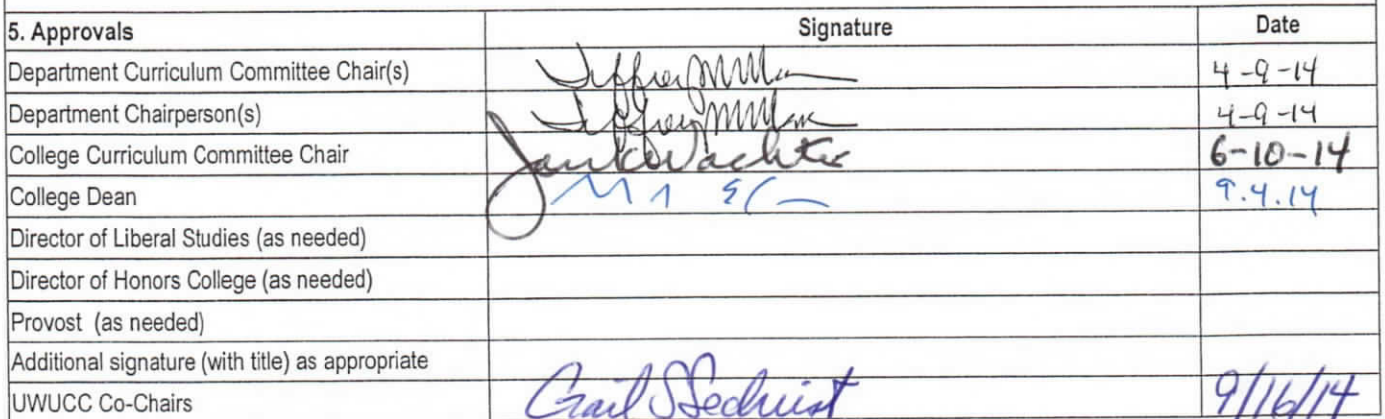 5. Approvals Signature Date
Department Curriculum Committee Chair(s) 4-9-14
Department Chairperson(s) 4-9-14
College Curriculum Committee Chair 6-10-14
College Dean 9.4.14
Director of Liberal Studies (as needed)
Director of Honors College (as needed)
Provost (as needed)
Additional signature (with title) as appropriate
UWUCC Co-Chairs Gail S Sechrist 9/16/14